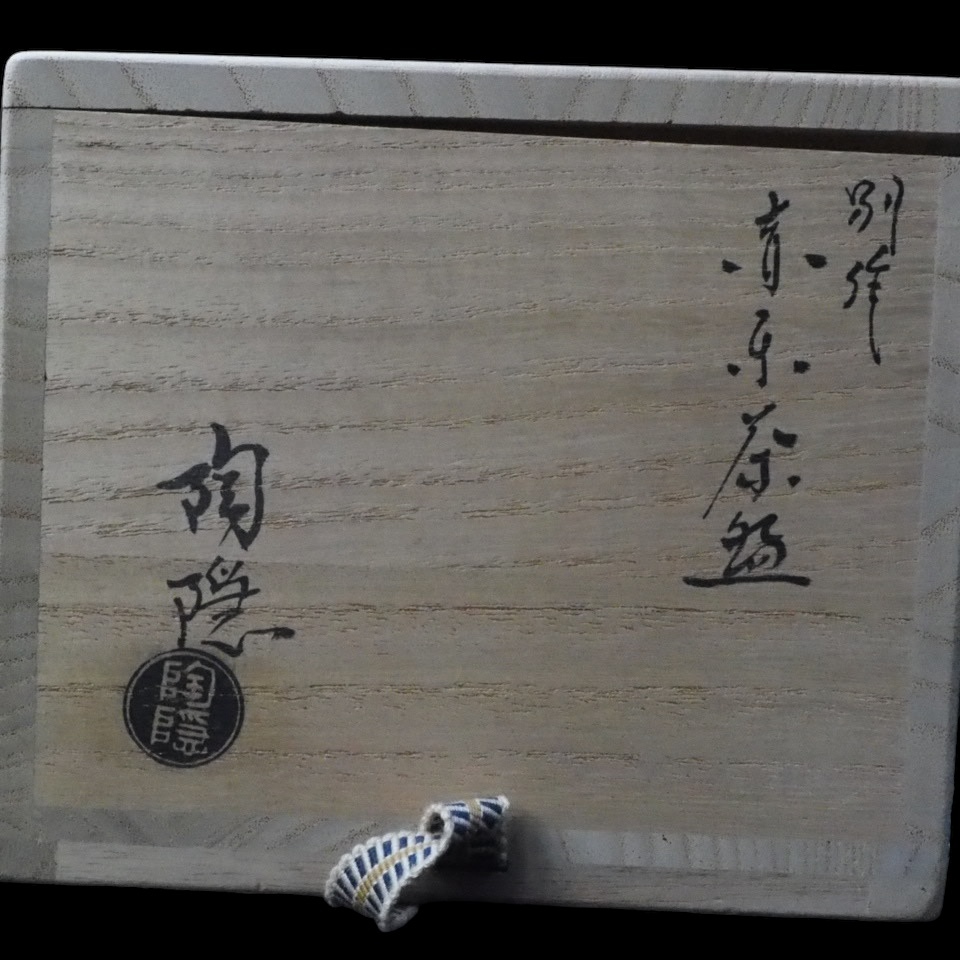 別作
赤楽茶盌
陶隠
陶隠